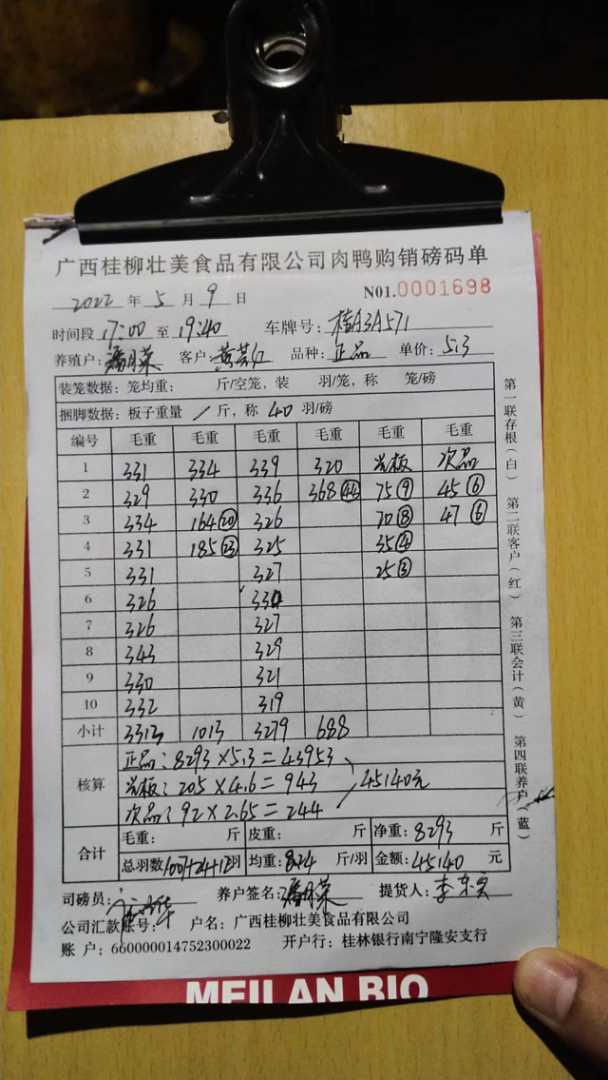 广西桂柳壮美食品有限公司肉鸭购销磅码单
2022 年 5 月 9 日 N01.0001698
时间段 17:00 至 19:40 车牌号: 桂A3A571
养殖户: 客户: 品种: 正品 单价: 5.3
装笼数据: 笼均重: 斤/空笼, 装 羽/笼, 称 笼/磅
捆脚数据: 板子重量 / 斤, 称 40 羽/磅
编号 毛重 毛重 毛重 毛重 毛重 毛重
1 331 334 339 320 光板 次品
2 329 330 336 368(44) 75(9) 45(6)
3 334 164(20) 326 70(8) 47(6)
4 331 185(23) 325 35(4)
5 331 327 25(3)
6 326 330
7 326 327
8 343 329
9 330 321
10 332 319
小计 3313 1013 3279 688
核算 正品: 8293×5.3=43953
光板: 205×4.6=943 45140元
次品: 92×2.65=244
合计 毛重: 斤 皮重: 斤 净重: 8293 斤
总羽数 1007+24+12 羽 均重: 8.24 斤/羽 金额: 45140 元
司磅员: 养户签名: 提货人:
公司汇款账号: 户名: 广西桂柳壮美食品有限公司
账 户: 660000014752300022 开户行: 桂林银行南宁隆安支行
第一联存根(白) 第二联客户(红) 第三联会计(黄) 第四联养户(蓝)
MEILAN BIO